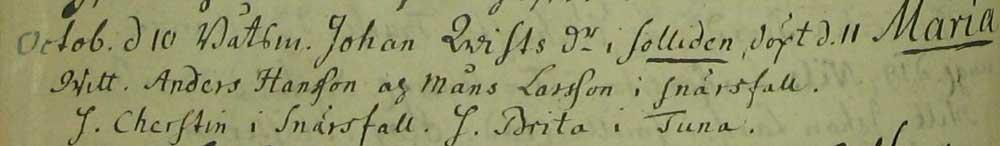 Octob. d 10 Båtsm. Johan Qvists dr i Solliden, döpt d. 11 Maria
Witt. Anders Hansson og Måns Larsson i Snärsfall.
H. Cherstin i Snärsfall. H. Brita i Tuna.